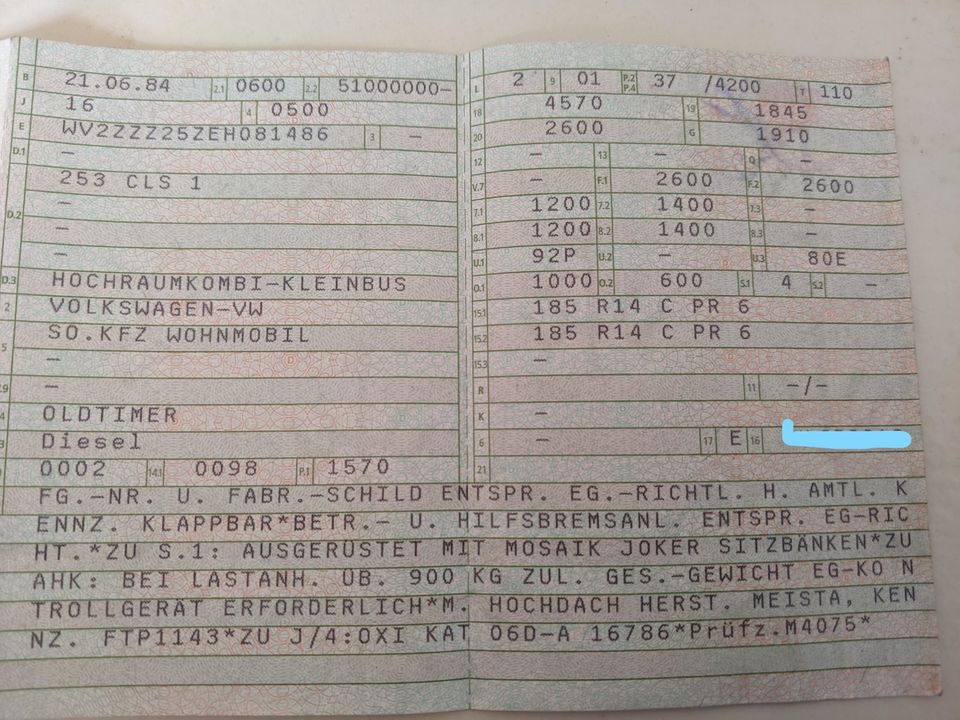 B 21.06.84 2.1 0600 2.2 51000000-
J 16 4 0500
E WV2ZZZ25ZEH081486 3 -
D.1 -
253 CLS 1
D.2 -
-
-
D.3 HOCHRAUMKOMBI-KLEINBUS
2 VOLKSWAGEN-VW
5 SO.KFZ WOHNMOBIL
-
V.9 -
14 OLDTIMER
P.3 Diesel
10 0002 14.1 0098 P.1 1570
L 2 9 01 P.2 P.4 37 /4200 T 110
18 4570 19 1845
20 2600 G 1910
12 - 13 - Q -
V.7 - F.1 2600 F.2 2600
7.1 1200 7.2 1400 7.3 -
8.1 1200 8.2 1400 8.3 -
U.1 92P U.2 - U.3 80E
O.1 1000 O.2 600 S.1 4 S.2 -
15.1 185 R14 C PR 6
15.2 185 R14 C PR 6
15.3 -
R 11 -/-
K -
6 - 17 E 16
21
FG.-NR. U. FABR.-SCHILD ENTSPR. EG.-RICHTL. H. AMTL. K
ENNZ. KLAPPBAR*BETR.- U. HILFSBREMSANL. ENTSPR. EG-RIC
HT.*ZU S.1: AUSGERÜSTET MIT MOSAIK JOKER SITZBÄNKEN*ZU
AHK: BEI LASTANH. ÜB. 900 KG ZUL. GES.-GEWICHT EG-KO N
TROLLGERÄT ERFORDERLICH*M. HOCHDACH HERST. MEISTA, KEN
NZ. FTP1143*ZU J/4:OXI KAT 06D-A 16786*Prüfz.M4075*